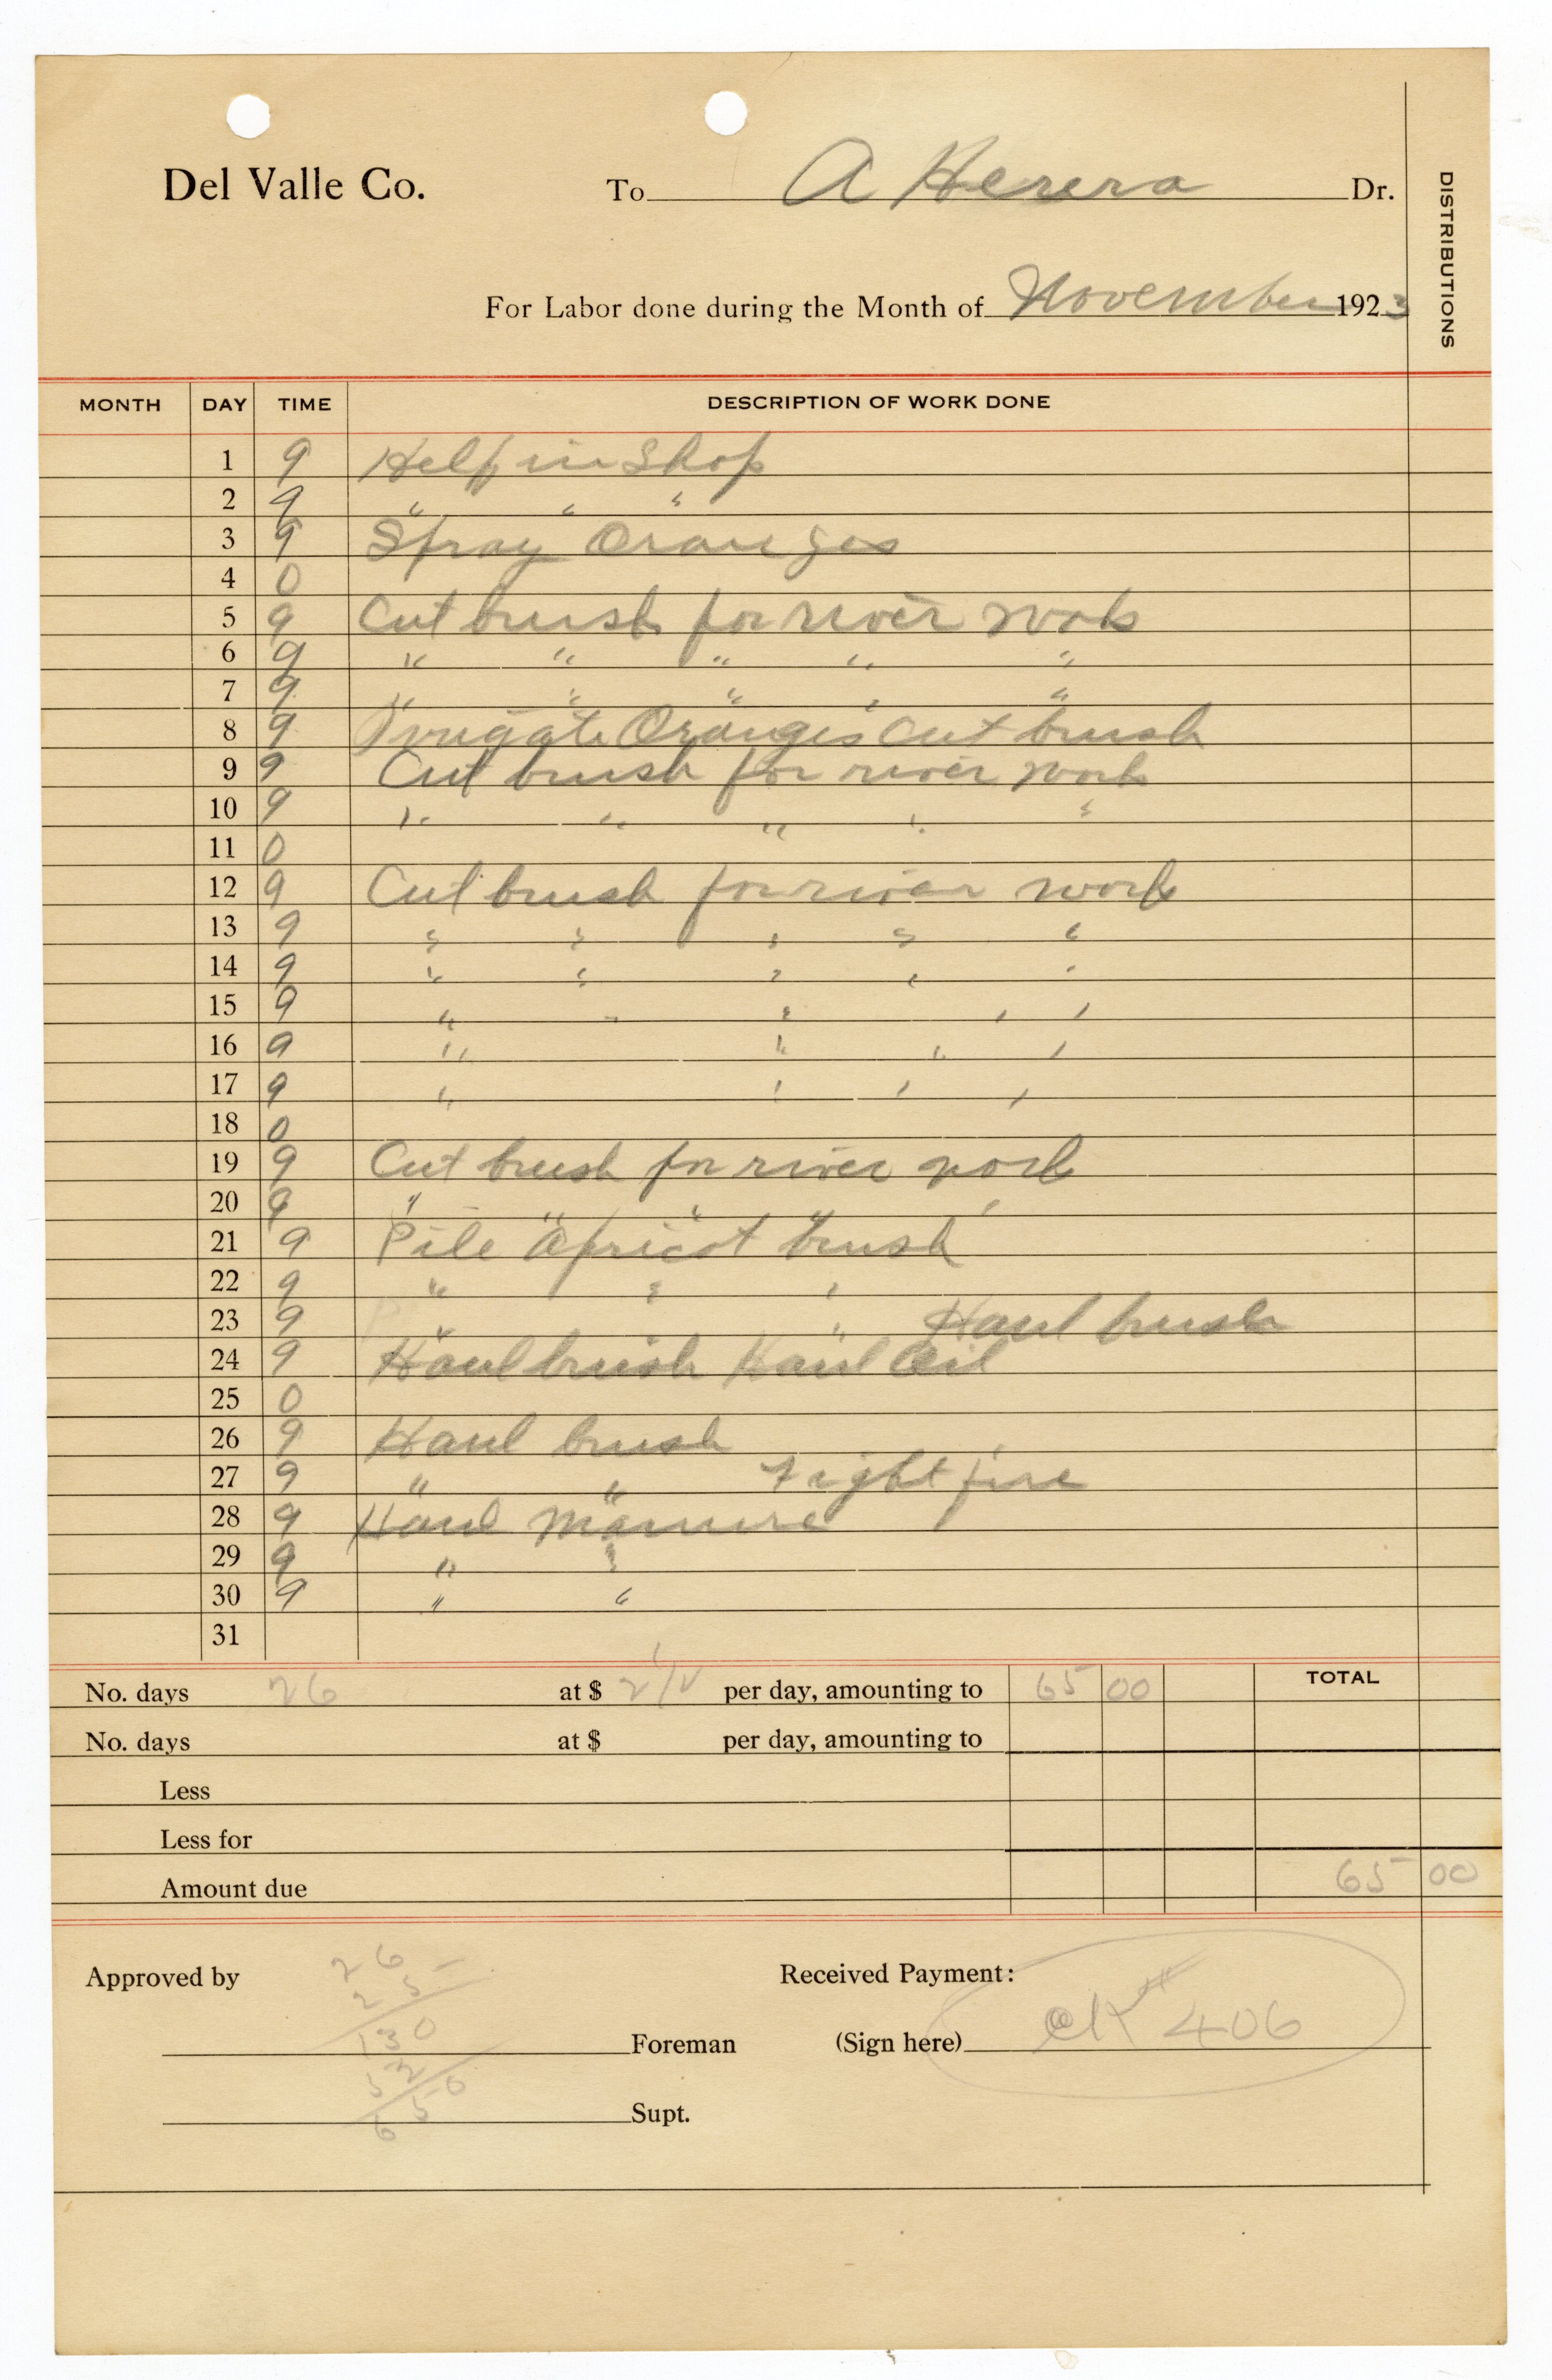 Del Valle Co. To A Herera Dr.
DISTRIBUTIONS
For Labor done during the Month of November 1923
MONTH DAY TIME DESCRIPTION OF WORK DONE
1 9 Help in Shop
2 9 " " "
3 9 Spray Oranges
4 0
5 9 Cut brush for river work
6 9 " " " " "
7 9 " " " " "
8 9 Irrigate Oranges Cut brush
9 9 Cut brush for river work
10 9 " " " " "
11 0
12 9 Cut brush for river work
13 9 " " " " "
14 9 " " " " "
15 9 " " " " "
16 9 " " " "
17 9 " " " "
18 0
19 9 Cut brush for river work
20 9 " " " " "
21 9 Pile Apricot brush
22 9 " " "
23 9 " " Haul brush
24 9 Haul brush Haul Oil
25 0
26 9 Haul brush
27 9 " " Fight fire
28 9 Haul Manure
29 9 " "
30 9 " "
31
No. days 26 at $ 2 1/2 per day, amounting to 65 00 TOTAL
No. days at $ per day, amounting to
Less
Less for
Amount due 65 00
Approved by 26 Received Payment:
25
130
Foreman (Sign here) ck # 406
52
650
Supt.